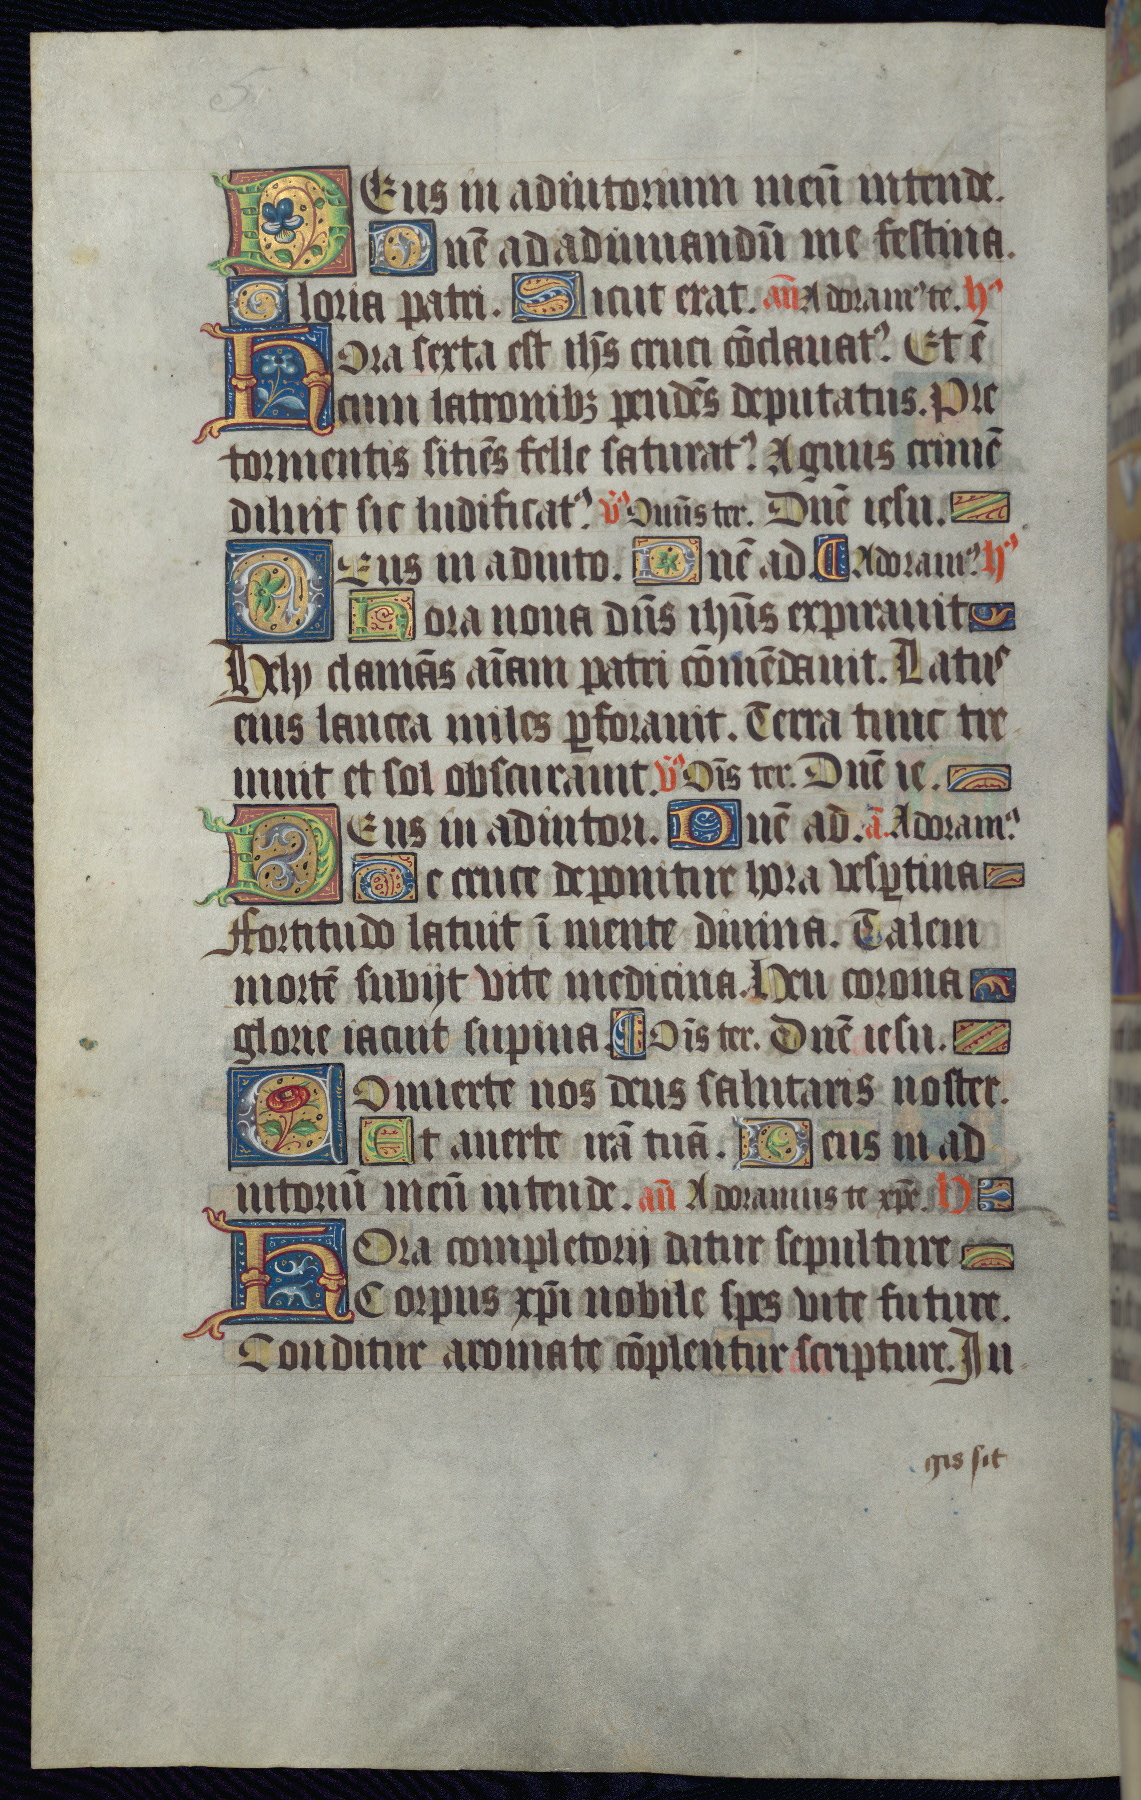 Deus in adiutorium meū intende.
Dnē ad adiuuandū me festina.
Gloria patri. Sicut erat. añ Adoramꝰ te. hꝰ
Hora sexta est ihs̄ cruci cōclauatꝰ. Et ē
cum latronibꝫ pendēs deputatus. Pre
tormentis sitiēs felle saturatꝰ. Agnus crimē
diluit sic ludificatꝰ. v̄ꝰ Dnus̄ ter. Dnē iesu.
Deus in adiuto. Dnē ad. Adoramꝰ. hꝰ
Hora nona dūs ihūs expirauit
Hely clamās aīam patri cōmēdauit. Latus
eius lancea miles ꝑforauit. Terra tunc tre
muit et sol obscurauit. v̄ꝰ Dīs ter. Dnē ie.
Deus in adiutori. Dnē ad. ā. Adoramꝰ.
De cruce deponitur hora vesꝑtina
ffortitudo latuit ī mente diuina. Talem
mortē subijt vite medicina. Heu corona
glorie iacuit supina. Dīs ter. Dnē iesu.
Conuerte nos deus salutaris noster.
Et auerte irā tuā. Deus in ad
iutoriū meū intende. añ Adoramus te xp̄e. H
Hora completorij datur sepulture
Corpus xp̄i nobile spes vite future.
Conditur aromate cōplentur scripture. In
gis sit